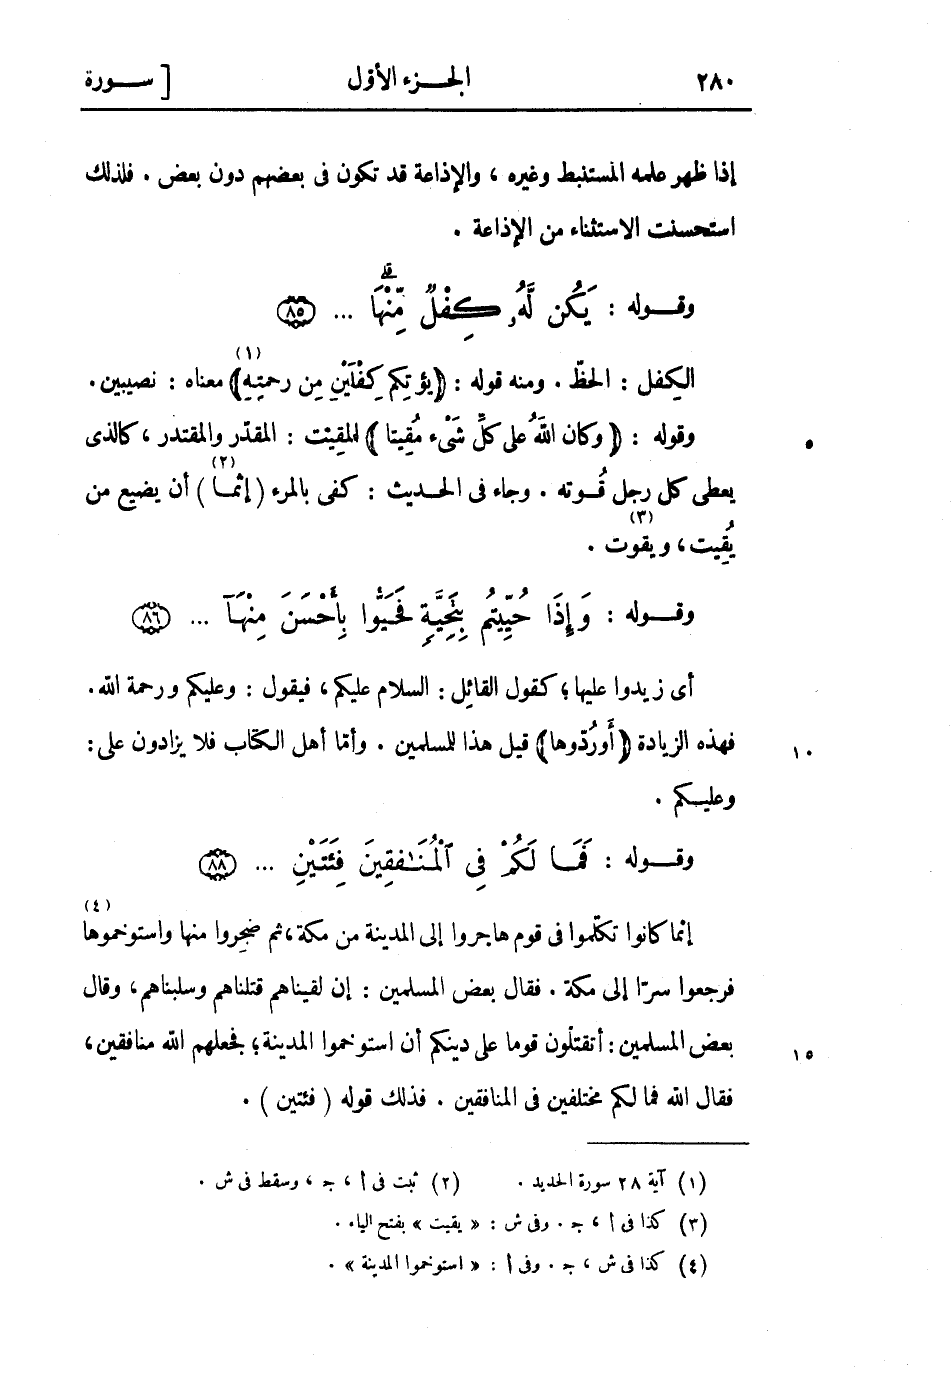 ٢٨٠ الجــزء الأوّل [ ســورة
إذا ظهر علمه المستنبط وغيره ، والإذاعة قد تكون فى بعضهم دون بعض . فلذلك
استحسنت الاستثناء من الإذاعة .
وقــوله : يَكُن لَّهُۥ كِفْلٌ مِّنْهَاۗ ... (٨٥)
الكِفل : الحظّ . ومنه قوله : ﴿يؤتِكم كِفْلَيْنِ مِن رحمتِهِ﴾(١) معناه : نصيبين .
وقوله : ﴿ وكان اللَّهُ على كلِّ شَىْء مُقِيتا ﴾ المقِيْت : المقدّر والمقتدر ، كالذى ٥
يعطى كل رجل قُــوته . وجاء فى الحديث : كفى بالمرء (إثمــا)(٢) أن يضيع من
يُقِيت(٣) ، ويقوت .
وقــوله : وَإِذَا حُيِّيتُم بِتَحِيَّةٍ فَحَيُّوا بِأَحْسَنَ مِنْهَآ ... (٨٦)
أى زيدوا عليها ؛ كقول القائل : السلام عليكم ، فيقول : وعليكم ورحمة الله .
فهذه الزيادة ﴿أَورُدّوها﴾ قيل هذا للمسلمين . وأمّا أهل الكتاب فلا يزادون على : ١٠
وعليــكم .
وقــوله : فَمَــا لَكُمْ فِى ٱلْمُنَـٰفِقِينَ فِئَتَيْنِ ... (٨٨)
إنّما كانوا تكلّموا فى قوم هاجروا إلى المدينة من مكة ، ثم ضجِروا منها واستوخموها(٤)
فرجعوا سرّا إلى مكة . فقال بعض المسلمين : إن لقيناهم قتلناهم وسلبناهم ، وقال
بعض المسلمين : أتقتلون قوما على دينكم أن استوخموا المدينة ؛ فجعلهم الله منافقين ، ١٥
فقال الله فما لكم مختلفين فى المنافقين . فذلك قوله ( فئتين ) .
(١) آية ٢٨ سورة الحديد . (٢) ثبت فى أ ، جـ ، وسقط فى ش .
(٣) كذا فى أ ، جـ . وفى ش : « يقيت » بفتح الياء .
(٤) كذا فى ش ، جـ . وفى أ : « استوخموا المدينة » .